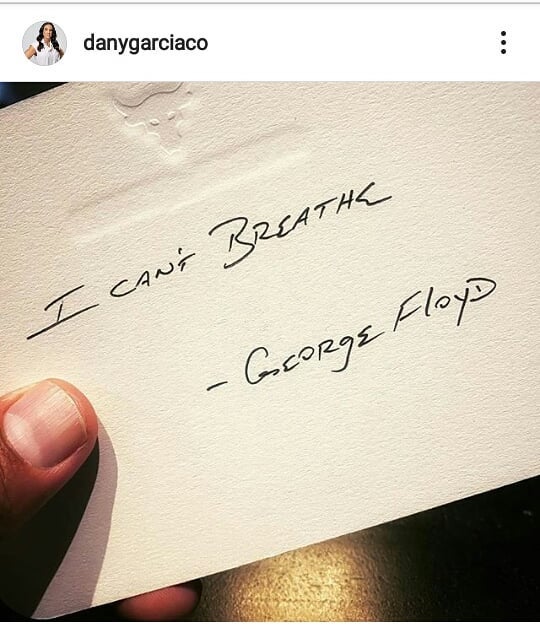 danygarciaco
I CAN'T BREATHE
- GEORGE FloyD